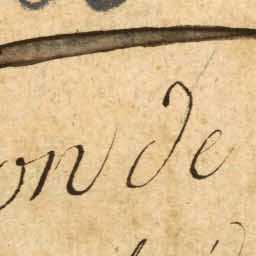 on de